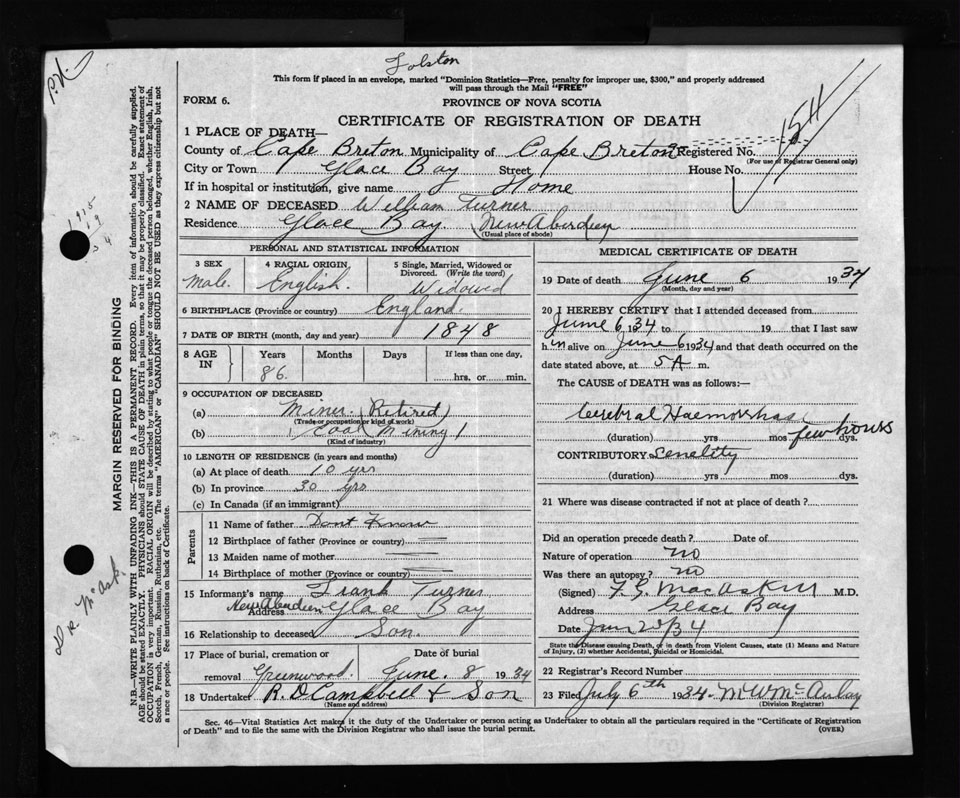 Folston
This form if placed in an envelope, marked "Dominion Statistics—Free, penalty for improper use, $300," and properly addressed
will pass through the Mail "FREE"
FORM 6.
PROVINCE OF NOVA SCOTIA
CERTIFICATE OF REGISTRATION OF DEATH
P.H.
1 PLACE OF DEATH—
County of Cape Breton Municipality of Cape Breton Registered No.
(For use of Registrar General only)
City or Town Glace Bay Street House No.
If in hospital or institution, give name Home
2 NAME OF DECEASED William Turner
Residence Glace Bay. New Aberdeen
(Usual place of abode)
PERSONAL AND STATISTICAL INFORMATION
3 SEX
Male.
4 RACIAL ORIGIN
English.
5 Single, Married, Widowed or
Divorced. (Write the word)
Widowed
6 BIRTHPLACE (Province or country) England.
7 DATE OF BIRTH (month, day and year) 1848
8 AGE IN
Years Months Days If less than one day,
86. hrs. or min.
9 OCCUPATION OF DECEASED
(a) Miner. (Retired)
(Trade or occupation or kind of work)
(b) Coal Mining
(Kind of industry)
10 LENGTH OF RESIDENCE (in years and months)
(a) At place of death 10 yrs
(b) In province 30 yrs
(c) In Canada (if an immigrant)
Parents
11 Name of father Dont Know
12 Birthplace of father (Province or country)
13 Maiden name of mother
14 Birthplace of mother (Province or country)
15 Informant's name Frank Turner
Address New Aberdeen Glace Bay
16 Relationship to deceased Son.
17 Place of burial, cremation or Date of burial
removal Greenwood. June. 8 1934
18 Undertaker R. D Campbell & Son
(Name and address)
MEDICAL CERTIFICATE OF DEATH
19 Date of death June 6 1934
(Month, day and year)
20 I HEREBY CERTIFY that I attended deceased from
June 6 1934 to 19 that I last saw
h im alive on June 6 1934 and that death occurred on the
date stated above, at 5 A m.
The CAUSE of DEATH was as follows:
Cerebral Haemorrhage
(duration) yrs mos few hours dys.
CONTRIBUTORY Senelity
(duration) yrs. mos. dys.
21 Where was disease contracted if not at place of death?
Did an operation precede death? Date of
Nature of operation no
Was there an autopsy? no
(Signed) F. G. MacAskill M.D.
Address Glace Bay
Date Jun 25/34
State the Disease causing Death, or in death from Violent Causes, state (1) Means and
Nature of Injury, (2) whether Accidental, Suicidal or Homicidal.
22 Registrar's Record Number
23 Filed July 6th 1934. M W McAulay
(Division Registrar)
Sec. 46—Vital Statistics Act makes it the duty of the Undertaker or person acting as Undertaker to obtain all the particulars required in the "Certificate of Registration
of Death" and to file the same with the Division Registrar who shall issue the burial permit.
(OVER)
MARGIN RESERVED FOR BINDING
N.B.—WRITE PLAINLY WITH UNFADING INK—THIS IS A PERMANENT RECORD. Every item of information should be carefully supplied.
AGE should be stated EXACTLY. PHYSICIANS should STATE CAUSE OF DEATH in plain terms, so that it may be properly classified. Exact statement of
OCCUPATION is very important. RACIAL ORIGIN will be described by stating to what people or tongue the deceased person belonged, whether English, Irish,
Scotch, French, German, Russian, Ruthenian, etc. The terms "AMERICAN" or "CANADIAN" SHOULD NOT BE USED as they express citizenship but not
a race or people. See instructions on back of Certificate.